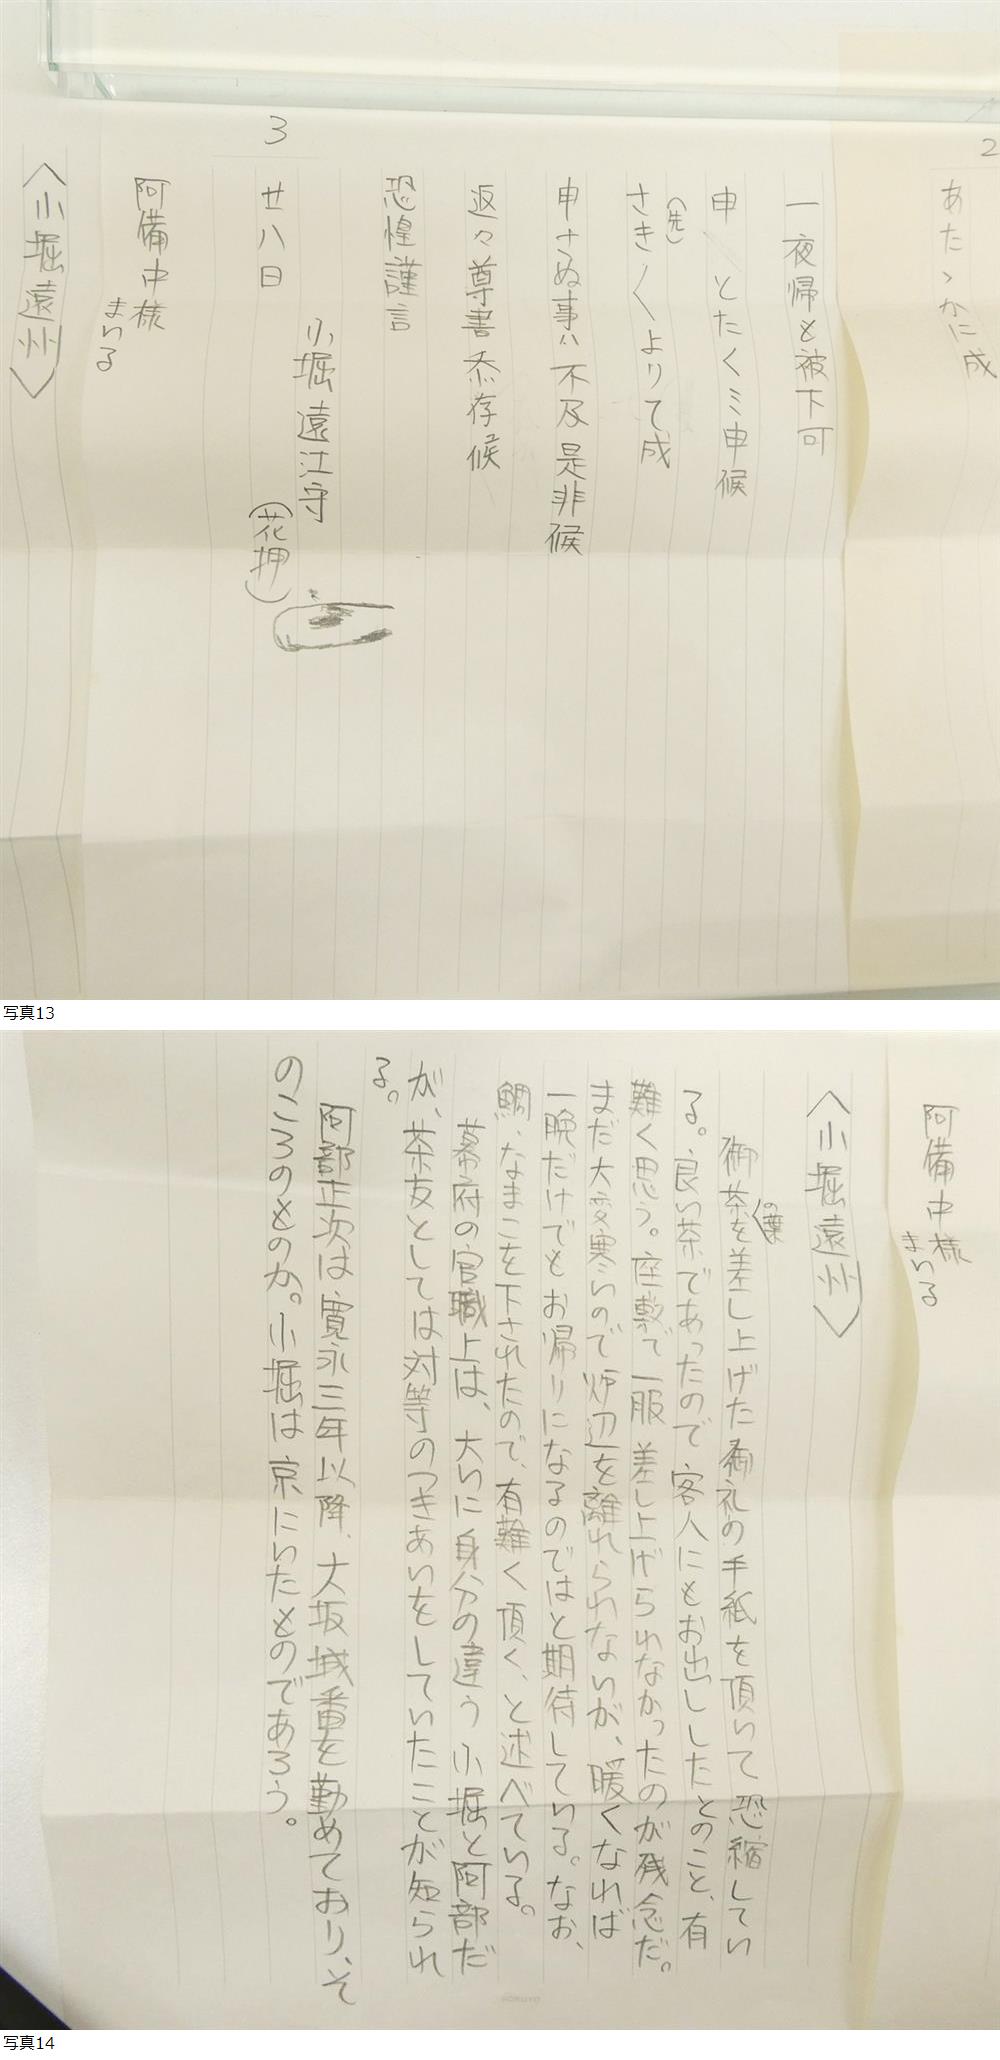 2
あたゝかに成
一夜帰も被下可
申 とたくミ申候
(先)
さき〳〵よりて成
申さぬ事ハ不及是非候
返々尊書忝存候
恐惶謹言
小堀遠江守
3
廿八日 (花押)
阿備中様
まいる
<小堀遠州>
写真13
阿備中様
まいる
<小堀遠州>
の葉
御茶を差し上げた御礼の手紙を頂いて恐縮してい
る。良い茶であったので客人にもお出ししたとのこと、有
難く思う。座敷で一服差し上げられなかったのが残念だ。
まだ大変寒いので炉辺を離れられないが、暖くなれば
一晩だけでもお帰りになるのではと期待している。なお、
鯛、なまこを下されたので、有難く頂く、と述べている。
幕府の官職上は、大いに身分の違う小堀と阿部だ
が、茶友としては対等のつきあいをしていたことが知られ
る。
阿部正次は寛永三年以降、大坂城番を勤めており、そ
のころのものか。小堀は京にいたものであろう。
KOKUYO
写真14